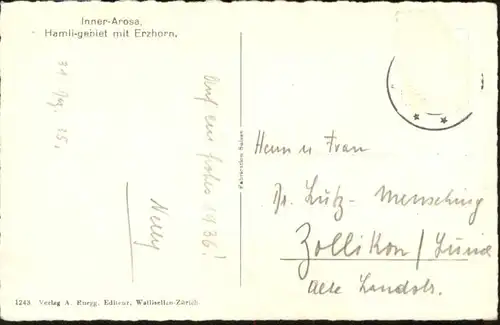 Inner-Arosa,
Hamli-gebiet mit Erzhorn.
31. Dez. 35.
Auf ein frohes 1936!
Nelly
Fabrication Suisse
Herrn u Frau
Dr. Lutz-Mensching
Zollikon /
Alte Landstr.
1243 Verlag A. Ruegg, Editeur, Wallisellen-Zürich